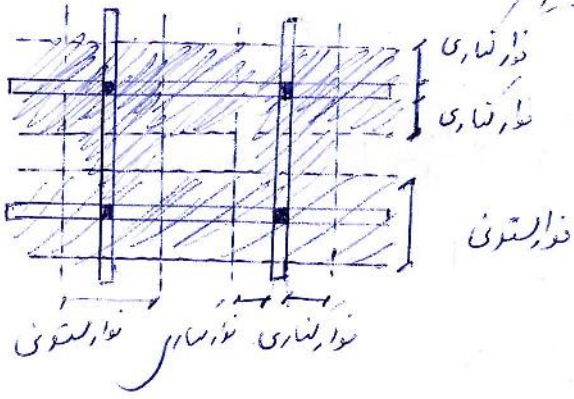 نوار کناری
نوار کناری
نوار ستونی
نوار ستونی نوار کناری نوار کناری